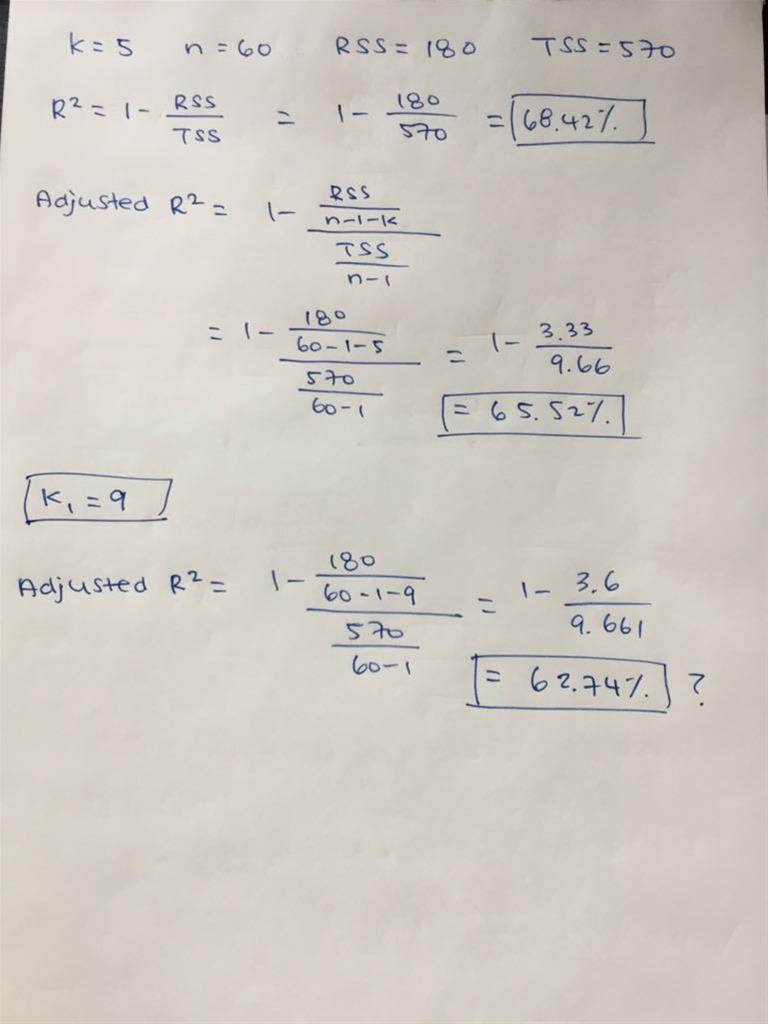 k = 5 n = 60 RSS = 180 TSS = 570
R² = 1 - RSS/TSS = 1 - 180/570 = 68.42%.
Adjusted R² = 1 - (RSS/(n-1-k))/(TSS/(n-1))
= 1 - (180/(60-1-5))/(570/(60-1)) = 1 - 3.33/9.66
= 65.52%.
K₁ = 9
Adjusted R² = 1 - (180/(60-1-9))/(570/(60-1)) = 1 - 3.6/9.661
= 62.74%. ?